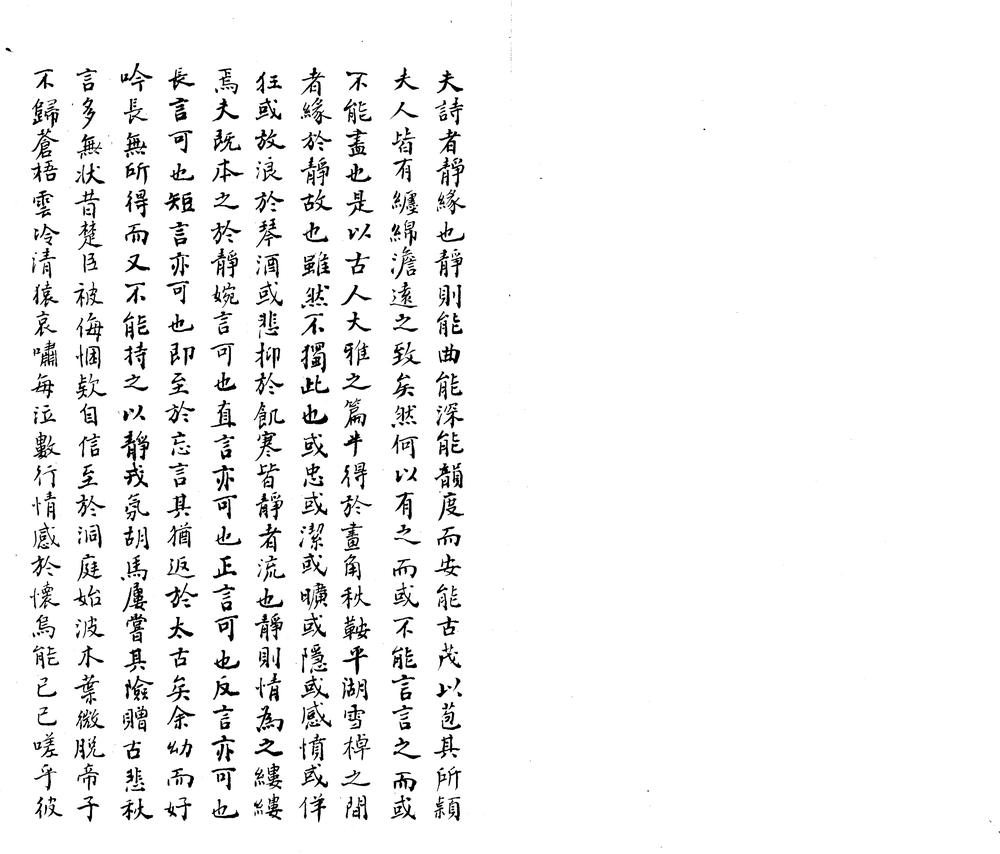 夫詩者靜緣也靜則能曲能深能韻度而安能古茂以苞其所穎
夫人皆有纏綿澹遠之致矣然何以有之而或不能言言之而或
不能盡也是以古人大雅之篇半得於畫角秋鞍平湖雪棹之間
者緣於靜故也雖然不獨此也或忠或潔或曠或隱或感憤或佯
狂或放浪於琴酒或悲抑於飢寒皆靜者流也靜則情為之縷縷
焉夫既本之於靜婉言可也直言亦可也正言可也反言亦可也
長言可也短言亦可也即至於忘言其猶返於太古矣余幼而好
吟長無所得而又不能持之以靜戎氛胡馬屢嘗其險贈古悲秋
言多無狀昔楚臣被侮悃欵自信至於洞庭始波木葉微脫帝子
不歸蒼梧雲冷清猿哀嘯每泣數行情感於懷烏能已已嗟乎彼